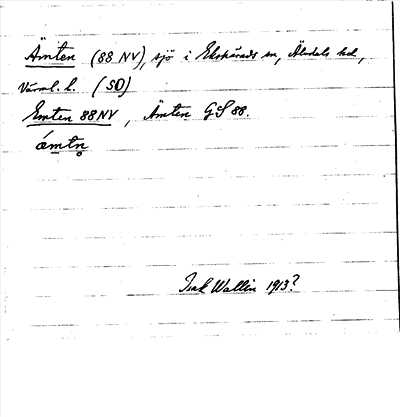 Ämten (88 NV), sjö i Ekshärads sn, Älvdals hd,
Värml. l. (SO)
Emten 88 NV, Ämten GS 88.
ǽmtn̥
Isak Wallin 1913?